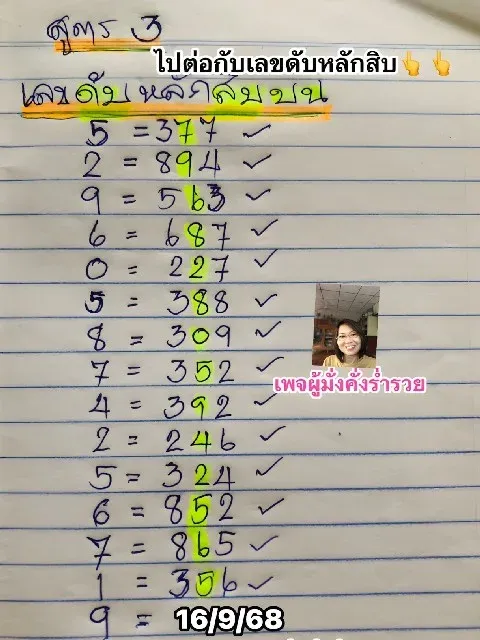 สูตร 3
ไปต่อกับเลขดับหลักสิบ👆👆
เลขดับหลักสิบบน
5 = 377 ✓
2 = 894 ✓
9 = 563 ✓
6 = 687 ✓
0 = 227 ✓
5 = 388 ✓
8 = 309 ✓
7 = 352 ✓
เพจผู้มั่งคั่งร่ำรวย
4 = 392 ✓
2 = 246 ✓
5 = 324 ✓
6 = 852 ✓
7 = 865 ✓
1 = 356 ✓
9 = 16/9/68